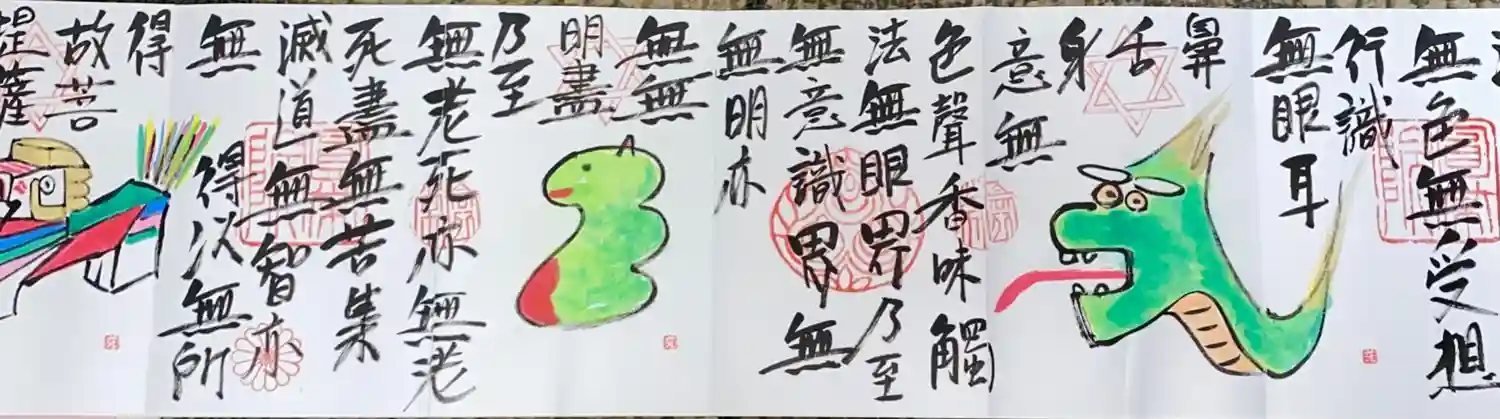 無色無受想
行識
無眼耳
鼻
舌
身
意無
色聲香味觸
法無眼界乃至
無意識界無
無明亦
無無
明盡
乃至
無老死亦無老
死盡無苦集
滅道無智亦
無得以無所
得
故菩
提薩